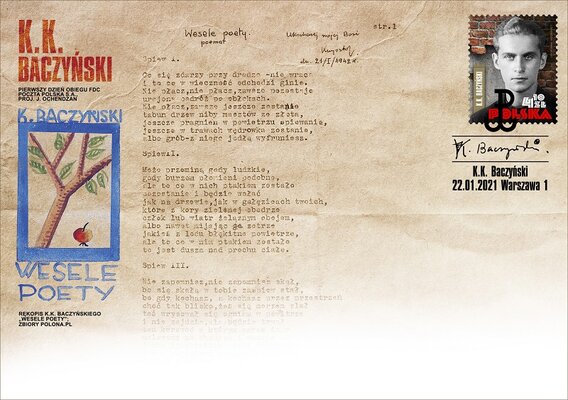 K.K.
BACZYŃSKI
PIERWSZY DZIEŃ OBIEGU FDC
POCZTA POLSKA S.A.
PROJ. J. OCHENDZAN
K. BACZYNSKI
WESELE
POETY
RĘKOPIS K.K. BACZYŃSKIEGO
„WESELE POETY”;
ZBIORY POLONA.PL
Wesele poety.
poemat
Ukochanej mojej Basi
Krzysztof
dn. 21/I/1942 r.
str.1
Śpiew I.
Co się zdarzy przy drodze -nie wraca
i to co w wieczność odchodzi ginie.
Nie płacz,nie płacz,zawsze pozostaje
urojona podróż po obłokach.
Nie płacz,zawsze jeszcze zostanie
tabun drzew niby masztów ze złota,
jeszcze pragnień w powietrzu śpiewanie,
jeszcze w trawach wędrówka zostanie,
albo grób-z niego jodłą wyfruniesz.
Śpiew II.
Może przeminą gady ludzkie,
gady burzom płomieni podobne,
ale to co w nich ptakiem zostało
pozostanie i będzie wołać
jak na drzewie,jak w gałęziach twoich,
które z kory zielonej obedrze
człek lub wiatr żelaznym obojem,
albo nawet mijając je zetrze
jakieś z lodu błękitne powietrze,
ale to co w nim ptakiem zostało
to jest dusza nad prochu ciało.
Śpiew III.
Nie zapomniał,nie zapomniał skał,
bo się skałą w tobie
bo gdy kochasz, a kochasz przez przestrzeń
choć tak blisko,
K.K. BACZYŃSKI
4,10 ZŁ
POLSKA
K. Baczyński.
K.K. Baczyński
22.01.2021 Warszawa 1